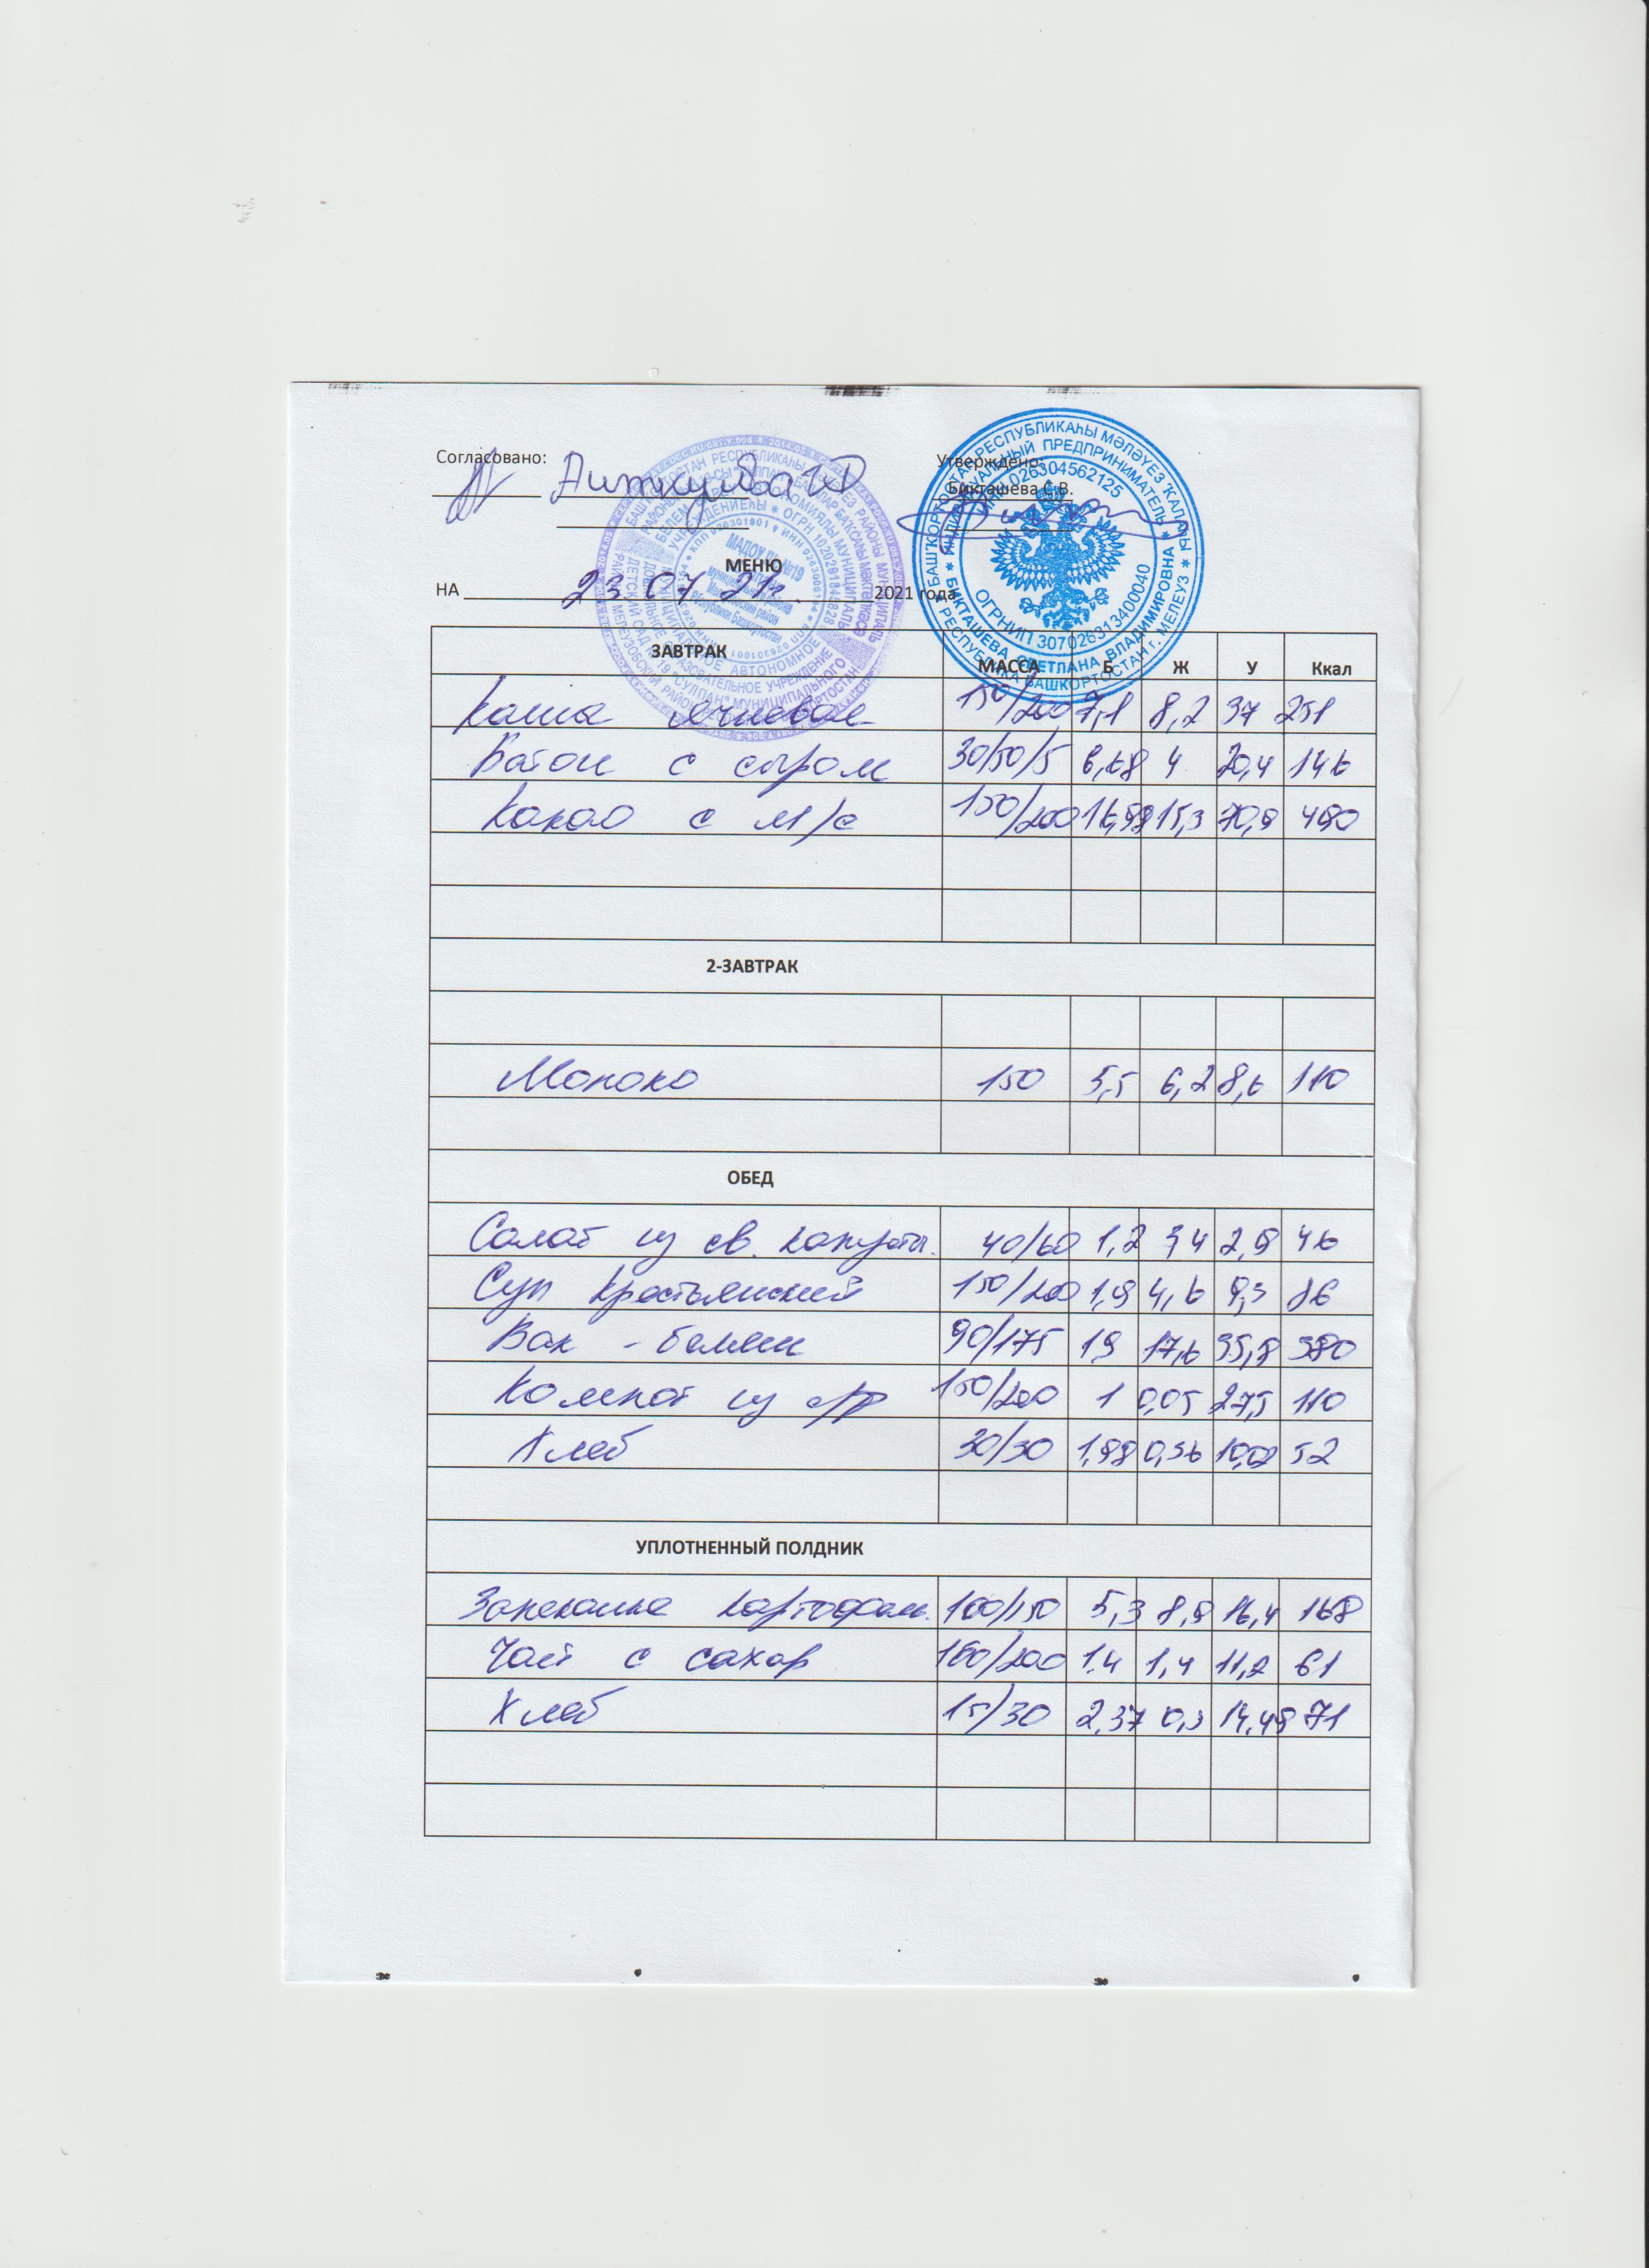 Согласовано:
Утверждено:
Бикташева С.В.
МЕНЮ
НА 23.07.21г. 2021 года
ЗАВТРАК МАССА Б Ж У Ккал
Каша ячневая 150/200 7,1 8,2 37 251
Батон с сыром 30/50/5 6,68 4 20,4 146
Какао с м/с 150/200 15,3 70,9 490
2-ЗАВТРАК
Молоко 150 5,5 6,2 8,6 110
ОБЕД
Салат из св. капусты. 40/60 1,2 2,9 46
Суп крестьянский 150/200 1,9 4,6 9,3 86
Вак - беляш 90/175 19 17,6 35,8 380
Компот из с/ф 150/200 1 0,05 27,5 110
Хлеб 30/30 1,98 0,36 52
УПЛОТНЕННЫЙ ПОЛДНИК
Запеканка картофель. 100/150 5,3 8,9 16,4 168
Чай с сахар 180/200 1.4 1,4 11,2 61
Хлеб 15/30 2,37 0,3 14,49 71
БАШҠОРТОСТАН РЕСПУБЛИКАҺЫ МӘЛӘҮЕЗ ҠАЛАҺЫ
ИНДИВИДУАЛЬНЫЙ ПРЕДПРИНИМАТЕЛЬ
ИНН 026304562125
ОГРНИП 307026313400040
БИКТАШЕВА СВЕТЛАНА ВЛАДИМИРОВНА
РЕСПУБЛИКА БАШКОРТОСТАН г. МЕЛЕУЗ